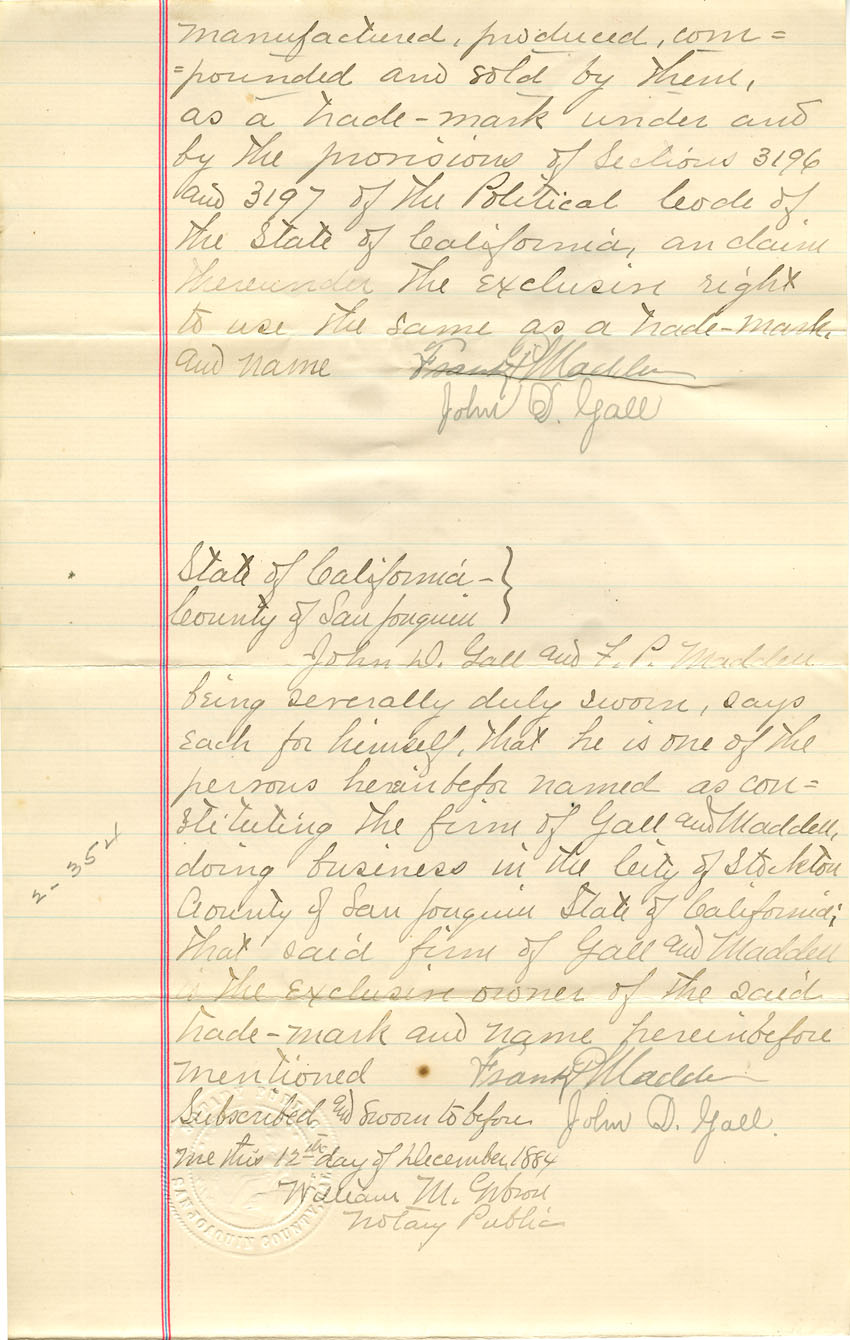 manufactured, produced, com=
=pounded and sold by them,
as a trade-mark under and
by the provisions of Sections 3196
and 3197 of the Political Code of
the State of California, an claim
thereunder the exclusive right
to use the same as a trade-mark,
and name Frank P Madden
John D. Gall
State of California - }
County of San Joaquin
John D. Gall and F. P. Madden
being severally duly sworn, says
Each for himself, that he is one of the
persons hereinbefor named as con=
stituting the firm of Gall and Madden,
doing business in the City of Stockton
County of San Joaquin State of California;
that said firm of Gall and Madden
is the exclusive owner of the said
trade-mark and name hereinbefore
mentioned Frank P Madden
Subscribed and Sworn to before John D. Gall.
me this 12th day of December, 1884
William M. Gibson
Notary Public
SAN JOAQUIN COUNTY
2-354